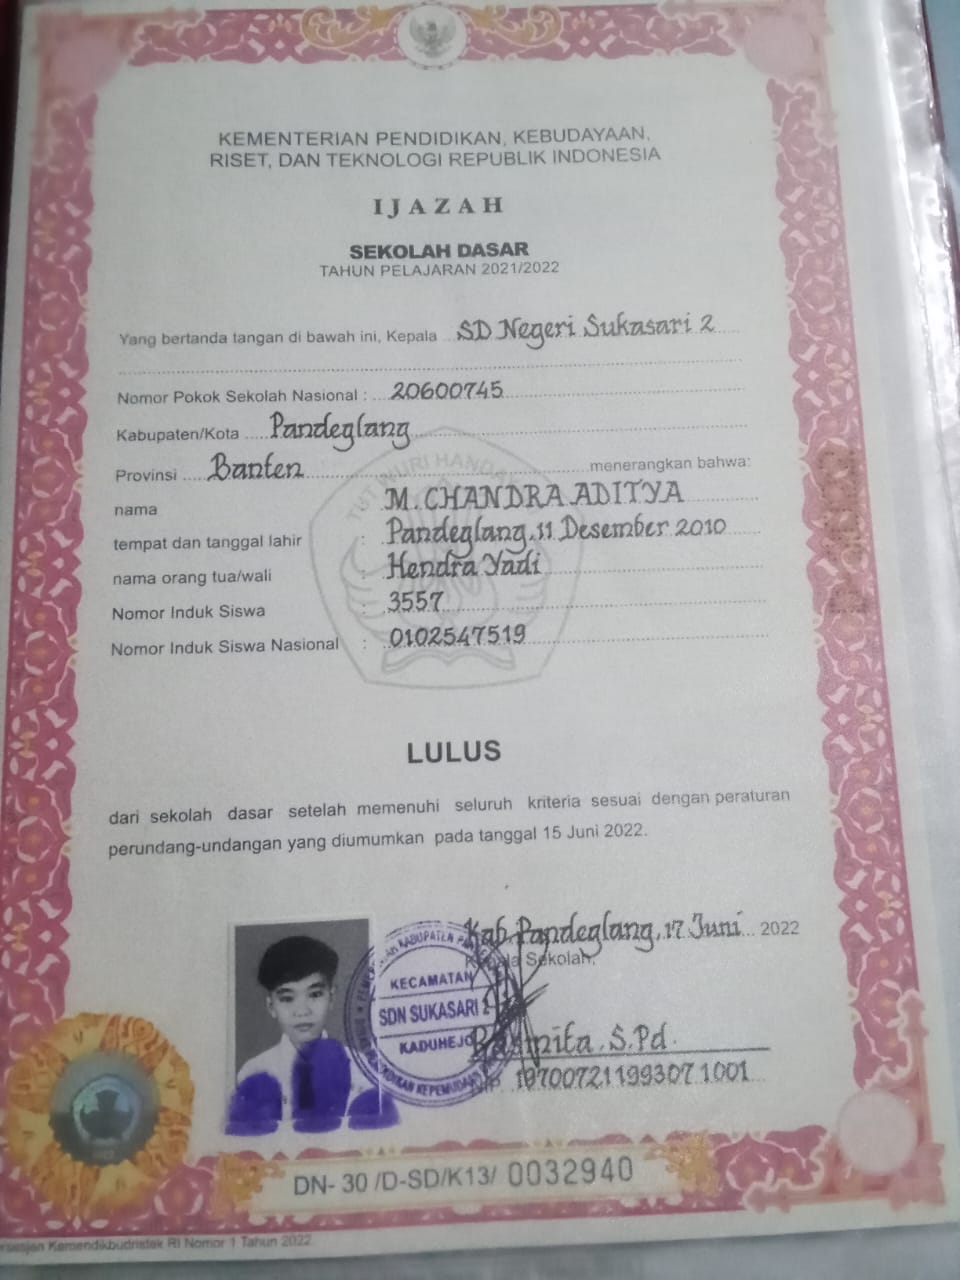 KEMENTERIAN PENDIDIKAN, KEBUDAYAAN,
RISET, DAN TEKNOLOGI REPUBLIK INDONESIA
IJAZAH
SEKOLAH DASAR
TAHUN PELAJARAN 2021/2022
Yang bertanda tangan di bawah ini, Kepala SD Negeri Sukasari 2
Nomor Pokok Sekolah Nasional : 20600745
Kabupaten/Kota Pandeglang
Provinsi Banten menerangkan bahwa:
nama M. CHANDRA ADITYA
tempat dan tanggal lahir : Pandeglang, 11 Desember 2010
nama orang tua/wali : Hendra Yadi
Nomor Induk Siswa : 3557
Nomor Induk Siswa Nasional : 0102547519
TUT WURI HANDAYANI
LULUS
dari sekolah dasar setelah memenuhi seluruh kriteria sesuai dengan peraturan
perundang-undangan yang diumumkan pada tanggal 15 Juni 2022.
Kab. Pandeglang, 17 Juni 2022
Kepala Sekolah,
KECAMATAN
SDN SUKASARI 2
KADUHEJO
S.Pd.
NIP. 197007211993071001
DN- 30 /D-SD/K13/ 0032940
Kemendikbudristek RI Nomor 1 Tahun 2022